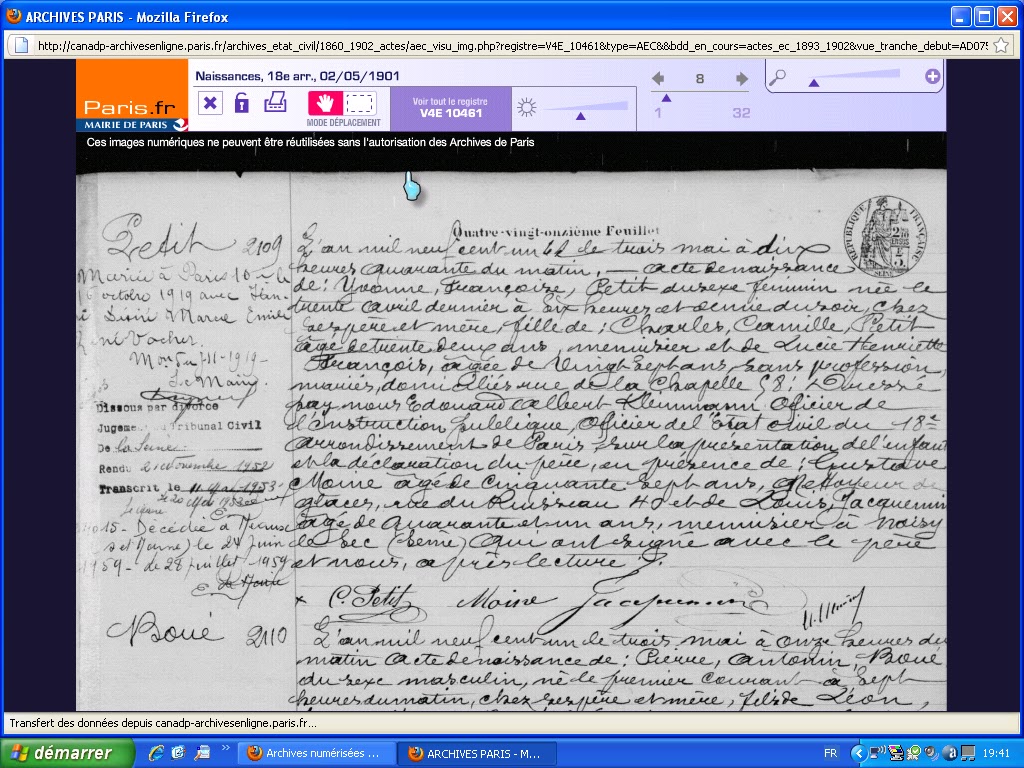 ARCHIVES PARIS - Mozilla Firefox
http://canadp-archivesenligne.paris.fr/archives_etat_civil/1860_1902_actes/aec_visu_img.php?registre=V4E_10461&type=AEC&&bdd_en_cours=actes_ec_1893_1902&vue_tranche_debut=AD075
Paris.fr
MAIRIE DE PARIS
Naissances, 18e arr., 02/05/1901
MODE DÉPLACEMENT
Voir tout le registre
V4E 10461
8
1 32
Ces images numériques ne peuvent être réutilisées sans l'autorisation des Archives de Paris
Quatre-vingt-onzième Feuillet
RÉPUBLIQUE FRANÇAISE
Petit 2109
Mariée à Paris 10e le
16 octobre 1919 avec
Dissous par divorce
Jugement du Tribunal Civil
De la Seine
Rendu 21 novembre 1952
Transcrit le 11 Mai 1953
Décédée à
et Marne) le 24 juin
1959 - de 28 juillet 1959
L'an mil neuf cent un le trois mai à dix
heures quarante du matin, — acte de naissance
de : Yvonne, Françoise, Petit du sexe féminin née le
trente avril dernier à six heures et demie du soir, chez
ses père et mère, fille de : Charles, Camille, Petit
âgé de trente deux ans, menuisier et de Lucie Henriette
François, âgée de Vingt Sept ans, sans profession,
mariés, domiciliés rue de la Chapelle 58 ; Dressé
par nous Edouard Albert Kleinmann Officier de
l'Instruction publique, Officier de l'Etat civil du 18e
arrondissement de Paris, sur la présentation de l'enfant
et la déclaration du père, en présence de : Gustave
Moine âgé de Cinquante Sept ans, Nettoyeur de
glaces, rue du Ruisseau 40 et de Louis, Jacquemin
âgé de Quarante et un ans, menuisier à Noisy
le Sec (Seine) Qui ont signé avec le père
et nous, après lecture.
C. Petit Moine Jacquemin
Boué 2110
L'an mil neuf cent un le trois mai à onze heures du
matin acte de naissance de : Pierre, Antonin, Boué
du sexe masculin, né le premier courant à sept
heures du matin, chez ses père et mère, fils de Léon,
Transfert des données depuis canadp-archivesenligne.paris.fr...
démarrer
Archives numérisées ...
ARCHIVES PARIS - M...
FR
19:41